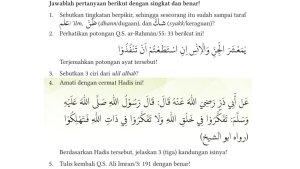 Jawablah pertanyaan berikut dengan singkat dan benar!
1. Sebutkan tingkatan berpikir, sehingga seseorang itu sudah sampai taraf
عِلْمٌ 'ilm, ظَنٌّ (dhann/dugaan), dan شَكٌّ (syakk/keraguan)?
2. Perhatikan potongan Q.S. ar-Rahmân/55: 33 berikut ini!
يٰمَعْشَرَ الْجِنِّ وَالْاِنْسِ اِنِ اسْتَطَعْتُمْ اَنْ تَنْفُذُوْا
Terjemahkan potongan ayat tersebut!
3. Sebutkan 3 ciri dari ulil albab!
4. Amati dengan cermat Hadis ini!
عَنْ أَبِي ذَرٍّ رَضِيَ اللهُ عَنْهُ قَالَ: قَالَ رَسُوْلُ اللهِ صَلَّى اللهُ عَلَيْهِ
وَسَلَّمَ: تَفَكَّرُوْا فِي خَلْقِ اللهِ وَلَا تَفَكَّرُوْا فِي ذَاتِ اللهِ فَتَهْلِكُوْا
(رواه ابو الشيخ)
Berdasarkan Hadis tersebut, jelaskan 3 (tiga) kandungan isinya!
5. Tulis kembali Q.S. Ali Imran/3: 191 dengan benar!